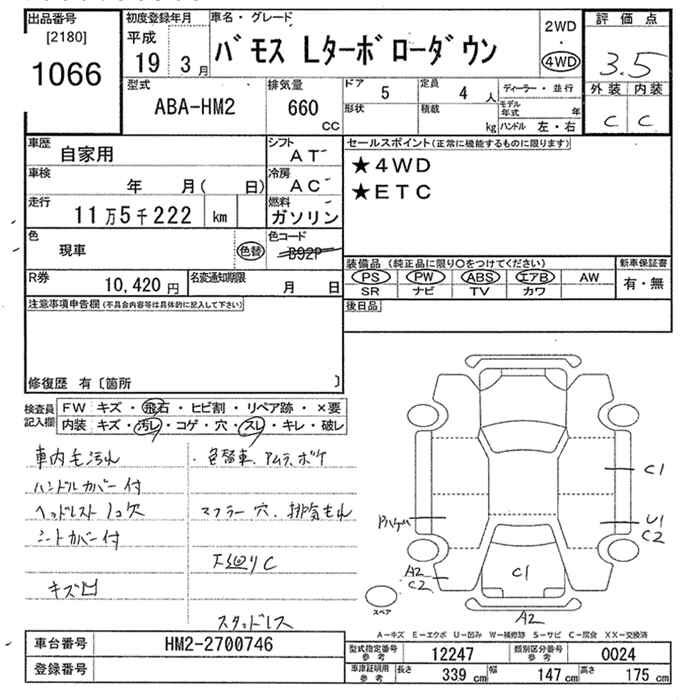 出品番号
[2180]
1066
初度登録年月
平成
19 3月
車名・グレード
バモス Lターボローダウン
2WD
・
4WD
評価点
3.5
外装 内装
C C
型式
ABA-HM2
排気量
660
CC
ドア 5
形状
定員 4 人
積載 kg
ディーラー・並行
モデル年式 年
ハンドル 左・右
車歴
自家用
シフト
AT
車検
年 月( 日)
冷房
AC
走行
11万5千222 km
燃料
ガソリン
色
現車
色替
色コード
B92P
R券
10,420 円
名変通知期限
月 日
セールスポイント(正常に機能するものに限ります)
★4WD
★ETC
装備品(純正品に限り○をつけてください)
PS PW ABS エアB AW
SR ナビ TV カワ
新車保証書
有・無
後日品
注意事項申告欄(不具合内容等は具体的に記入して下さい)
修復歴 有〔箇所 〕
検査員記入欄
FW キズ・飛石・ヒビ割・リペア跡・×要
内装 キズ・汚レ・コゲ・穴・スレ・キレ・破レ
車内毛汚れ
ハンドルカバー付
ヘッドレスト1コ欠
シートカバー付
キズ凹
・色替車、アムラ、ボケ
マフラー穴、排気もれ
下廻りC
スタッドレス
C1
U1
C2
A2
C2
C1
A2
スペア
A－キズ E－エクボ U－凹み W－補修跡 S－サビ C－腐食 XX－交換済
車台番号
HM2-2700746
登録番号
型式指定番号
参考
12247
類別区分番号
参考
0024
車庫証明用
参考
長さ 339 cm 幅 147 cm 高さ 175 cm